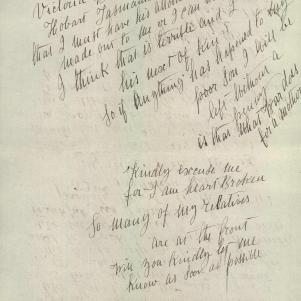 Victoria
Hobart Tasmania
that I must have his allot
made out to me or I can
I think that is terrible and I
his next of kin
So if anything has hapened to my
poor boy I will be
left without a
is that
what four
for a mother
Kindly excuse me
for I am heart Broken
So many of my relatives
are at the front
will you kindly let me
know as soon as possible